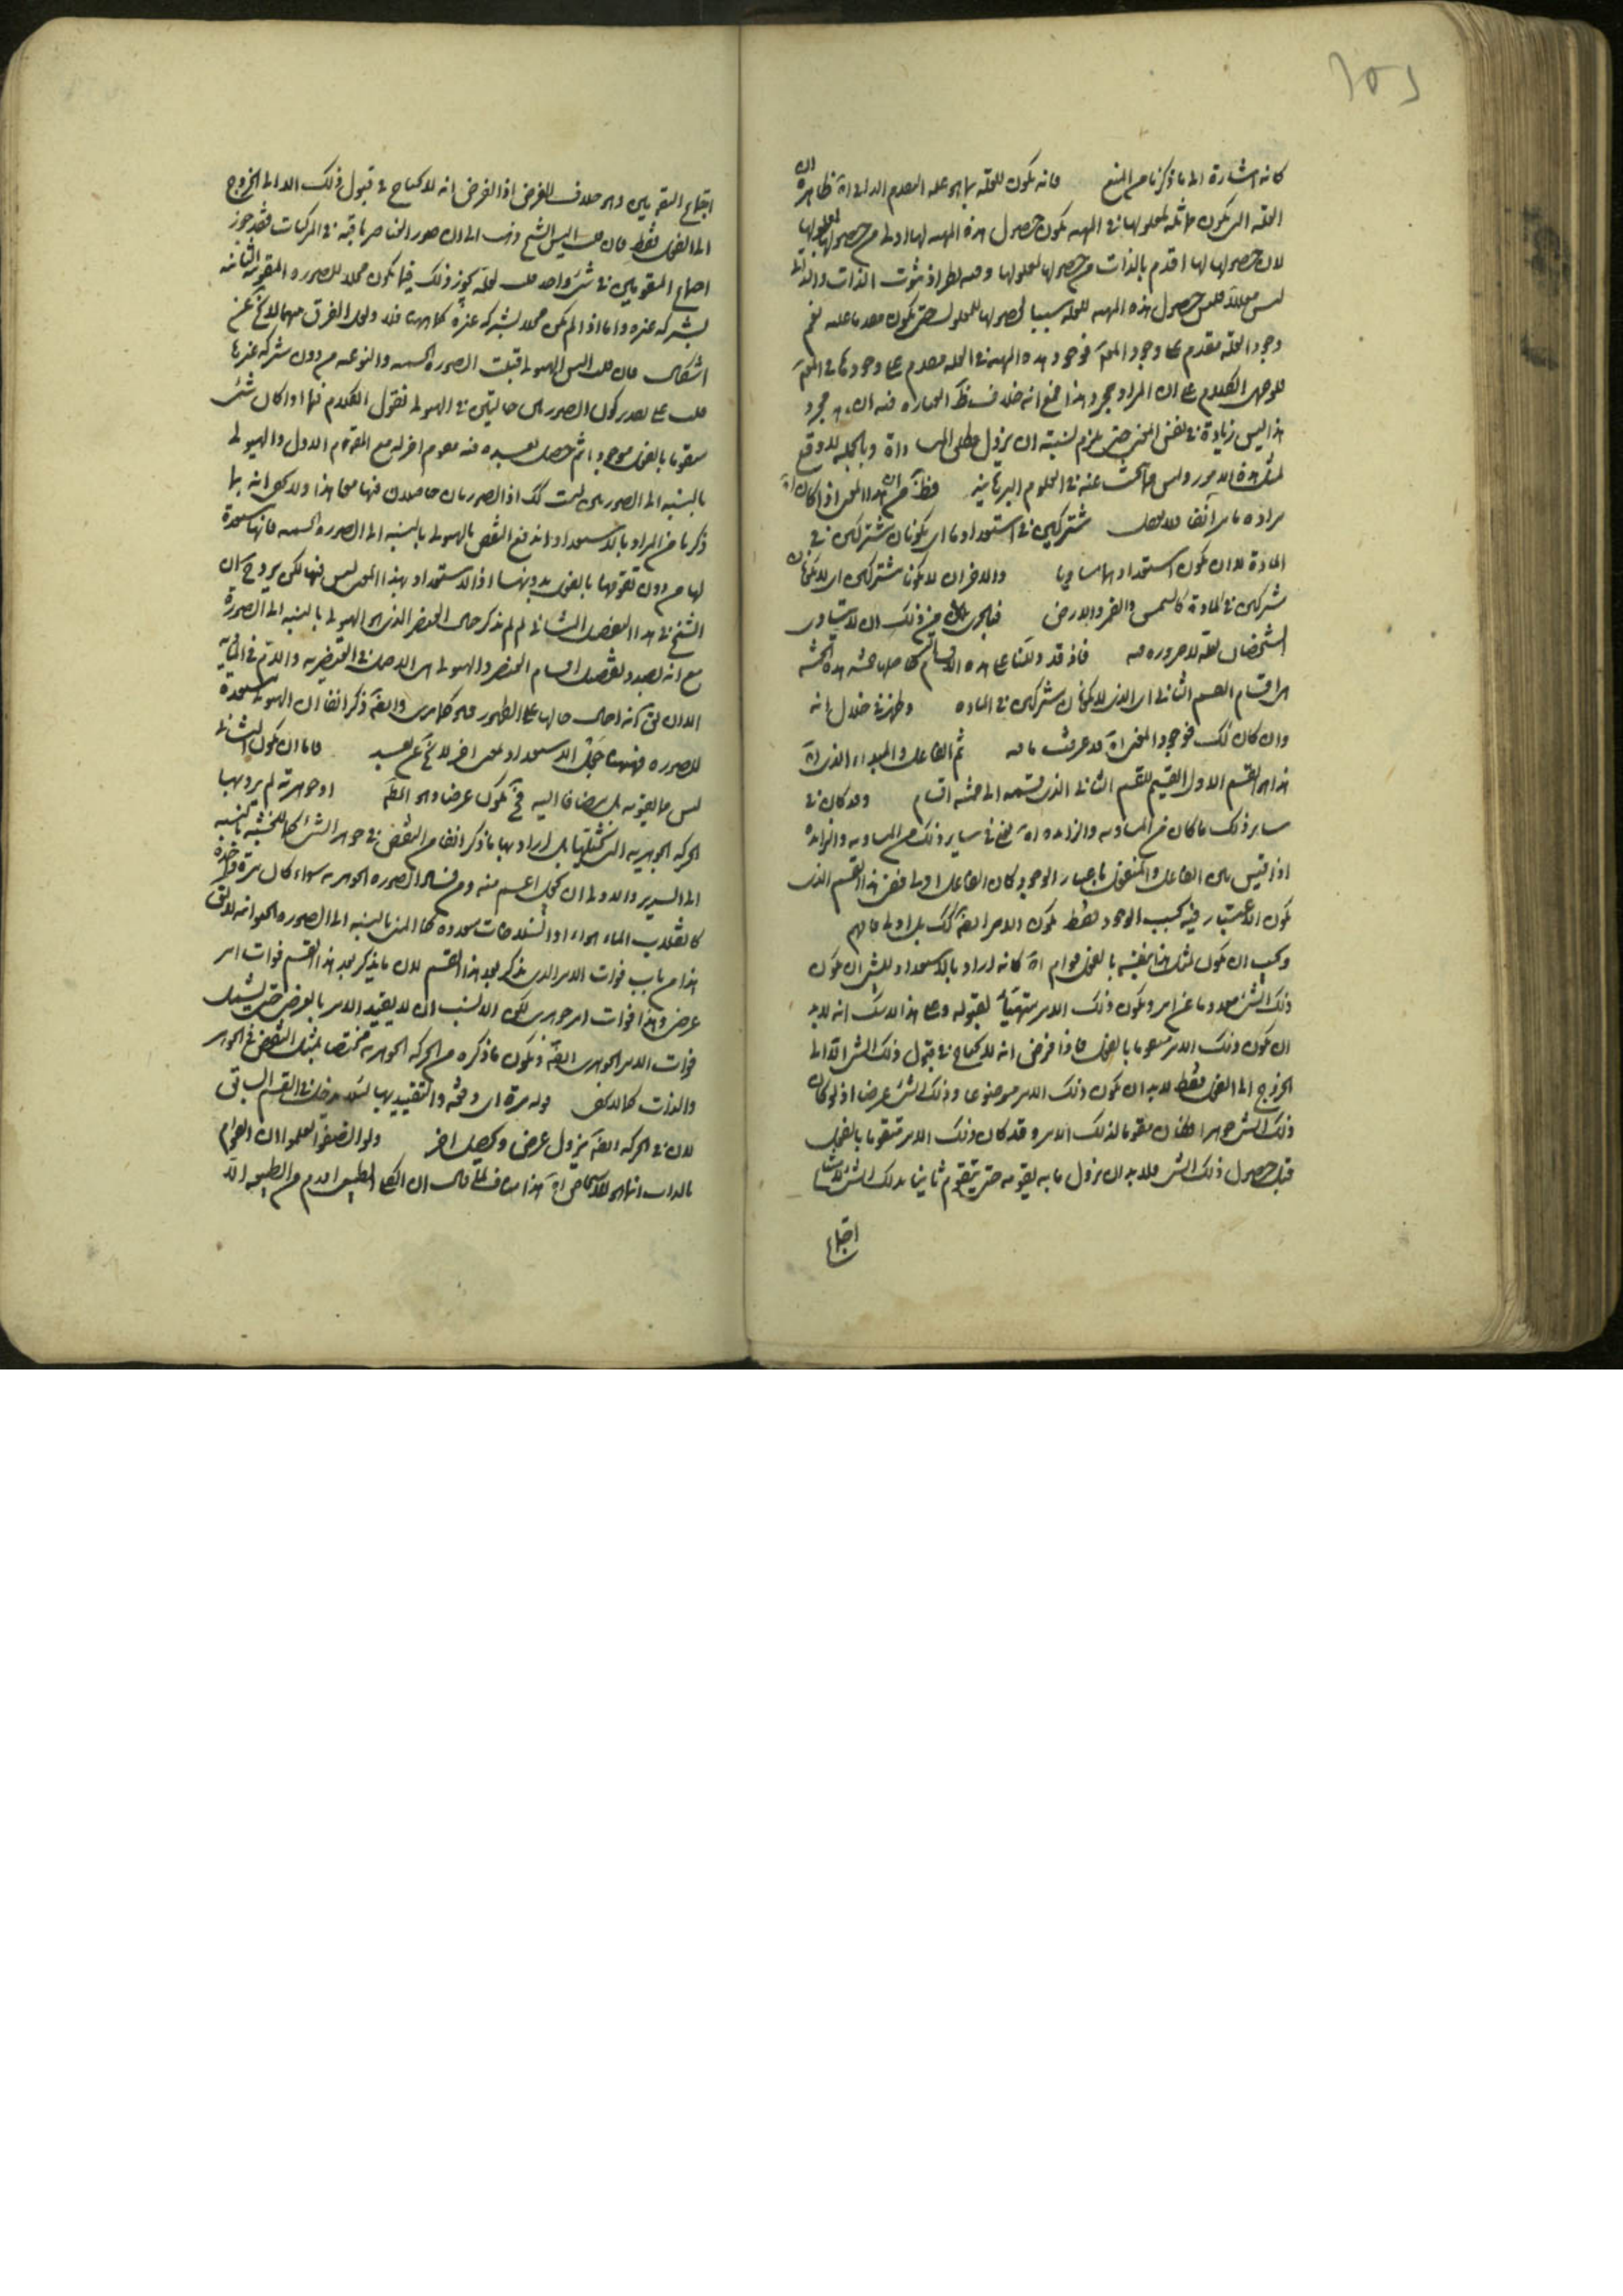 كانه اشارة الى ما ذكرنا من المنع فانه يكون للعلة بما هو علة التقدم الذاتى اه ظاهره ان
العلة التى يكون مماثلة لمعلولها فى المهية يكون حصول هذه المهية لها اولى من حصولها لمعلولها
لان حصولها لها اقدم بالذات من حصولها لمعلولها وفيه نظر اذ ثبوت الذات والذاتى
ليس معللا فليس حصول هذه المهية للعلة سببا لحصولها للمعلول حتى يكون مقدما عليه نعم
وجود العلة مقدم على وجود المعلول فوجود هذه المهية فى العلة مقدم على وجودها فى المعلول
الكلام على ان المراد مجرد هذا مع انه خلاف ظاهر العبارة فيه ان مجرد
هذا ليس زيادة فى نفس المعنى حتى يلزم نسبته ان يزول مطلق المساواة وبالجملة لا وقع
لمثل هذه الامور وليس مما يبحث عنه فى العلوم البرهانية فظاهر من ان هذا المعنى اذا كان اه
مراده ما مر آنفا مشتركين فى استعداد ما اى يكونان مشتركين فى
المادة لا ان يكون استعدادهما مساويا والاخر ان لا يكونا مشتركين اى لا يكونان
مشتركين فى المادة كالشمس والقمر والارض من ذلك ان لا يتساوى
الشخصان لا ضرورة فيه فاذ قد دللنا على هذه الاقسام خمسة هذه الخمسة
هى اقسام القسم الثانى اى الذى لا يكونان مشتركين فى المادة وظهر فى خلال انه
وان كان كك فوجود المعنى اه قد عرفت ما فيه ثم الفاعل والمبدأ الذى اه
هذا هو القسم الاول القسيم للقسم الثانى الذى قسمه الى خمسة اقسام وقد كان فى
ساير ذلك ما كان من المساوية والزايدة اه يعنى فى ساير ذلك من المساوية والزايدة
اذا قيس بين الفاعل والمنفعل باعتبار الوجود كان الفاعل اولى ففى هذا القسم الذى
يكون الاعتبار فيه بحسب الوجود فقط يكون الامر ايضا كك بل اولى فافهم
ويجب ان يكون لمثل هذا بنفسه بالفعل قوام اه كانه اراد بالاستعداد للشئ ان يكون
ذلك الشئ معدوما عن امر ويكون ذلك الامر متهيئا لقبوله وعلى هذا لا شك انه لا بد
ان يكون ذلك الامر متقوما بالفعل فاذا فرض انه لا يحتاج فى قبول ذلك الشئ الا الى
الخروج الى الفعل فقط لا بد ان يكون ذلك الامر موضوعا وذلك الشئ عرضا اذ لو كان
ذلك الشئ جوهرا لكان مقوما لذلك الامر وقد كان ذلك الامر متقوما بالفعل
قبل حصول ذلك الشئ فلا بد ان يزول ما به يقومه حتى يتقوم ثانيا بذلك الشئ لامتناع
اجتماع
اجتماع المقومين وهو خلاف للفرض اذ الفرض انه لا يحتاج فى قبول ذلك الا الى الخروج
الى الفعل فقط فان قلت اليس الشيخ ذهب الى ان صور العناصر باقية فى المركبات فقد جوز
اجتماع المقومين فى شئ واحد قلت لعله يجوز ذلك فيما يكون محلا للصورة المقومة الثانية
بشركة غيره واما اذا لم يكن محلا بشركة غيره كما ههنا فلا ولعل الفرق بينهما لا يخ عن
اشكال فان قلت اليس الهيولى قبلت الصورة الجسمية والنوعية من دون شركة غيرها
قلت على تقدير كون الصورتين حالتين فى الهيولى نقول الكلام فيما اذا كان شئ
متقوما بالفعل موجودا ثم حصل بعده فيه مقوم اخر له مع المقوم الاول والهيولى
بالنسبة الى الصورتين ليست كك اذ الصورتان حاصلان فيها معا هذا ولا يخفى انه بما
ذكرنا من المراد بالاستعداد اندفع النقض بالهيولى بالنسبة الى الصورة الجسمية فانها مستعدة
لها من دون تقومها بالفعل بدونها اذ الاستعداد بهذا المعنى ليس فيها لكن يرد ح ان
الشيخ فى هذا التفصيل الثانى لم لم يذكر حال العنصر الذى هو الهيولى بالنسبة الى الصورة
مع انه بصدد تفصيل اقسام العنصر والهيولى هى الاصل فى العنصرية والاتم فى القابلية
الا ان يق كانه احال حالها على الظهور فهو كما ترى وايضا ذكر انفا ان الهيولى مستعدة
للصورة فههنا جعل الاستعداد لمعنى اخر لا يخ عن بعد فاما ان يكون الشانى
ليس مما يقومه بل يضاف اليه فح يكون عرضا وهو المط او جوهرية لم يرد بها
الحركة الجوهرية التى بل اراد بها ما ذكر انفا من النقص فى جوهر الشئ كما للخشبة بالنسبة
الى السرير والاولى ان يجعل اعم منه ومن فساد الصورة الجوهرية سواء كان مرة واحدة
كانقلاب الماء هواء او انسلاخات متعددة كما للمنى بالنسبة الى الصورة الحيوانية لا يق
هذا من باب فوات الامر الذى يذكر بعد هذا القسم لان ما يذكر بعد هذا القسم فوات امر
عرضى وهذا فوات امر جوهرى لكن الانسب ان لا يقيد الامر بالعرضى حتى يشمل
فوات الامر الجوهرى ايضا ويكون ما ذكره من الحركة الجوهرية مختصا بمثل النقص فى الجوهر
والذات كما لا يخفى قوله مرة اى دفعة والتقييد بها لئلا يدخل فى القسم السابق
لان فى الحركة ايضا يزول عرض ويحصل اخر ولو انصفوا لعلموا ان القوام
بالذات انما هو للاشخاص اه هذا مناف لما قال ان الكلى الطبيعى اقدم من الطبيعة الا